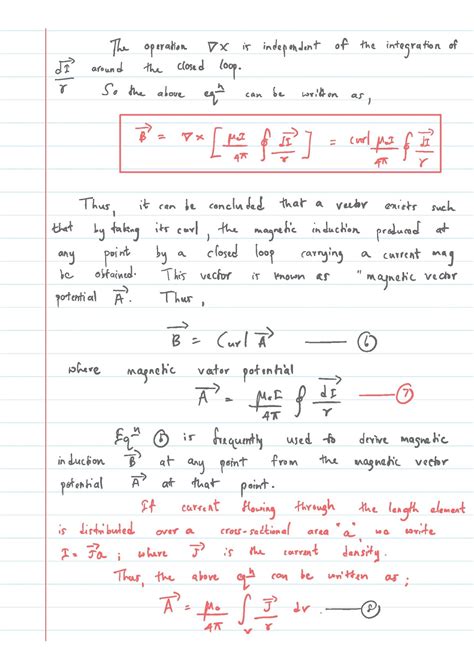 The operation ∇× is independent of the integration of
dl⃗/r around the closed loop.
So the above eqⁿ can be written as,
B⃗ = ∇× [ μ₀I/4π ∮ dl⃗/r ] = curl μ₀I/4π ∮ dl⃗/r
Thus, it can be concluded that a vector exists such
that by taking its curl, the magnetic induction produced at
any point by a closed loop carrying a current may
be obtained. This vector is known as "magnetic vector
potential A⃗. Thus,
B⃗ = Curl A⃗ —— ⑥
where magnetic vector potential
A⃗ = μ₀I/4π ∮ dl⃗/r —— ⑦
Eqⁿ ⑥ is frequently used to derive magnetic
induction B⃗ at any point from the magnetic vector
potential A⃗ at that point.
If current flowing through the length element
is distributed over a cross-sectional area "a", we write
I = J⃗a ; where J⃗ is the current density.
Thus, the above eqⁿ can be written as;
A⃗ = μ₀/4π ∫ᵥ J⃗/r dv. —— ⑧